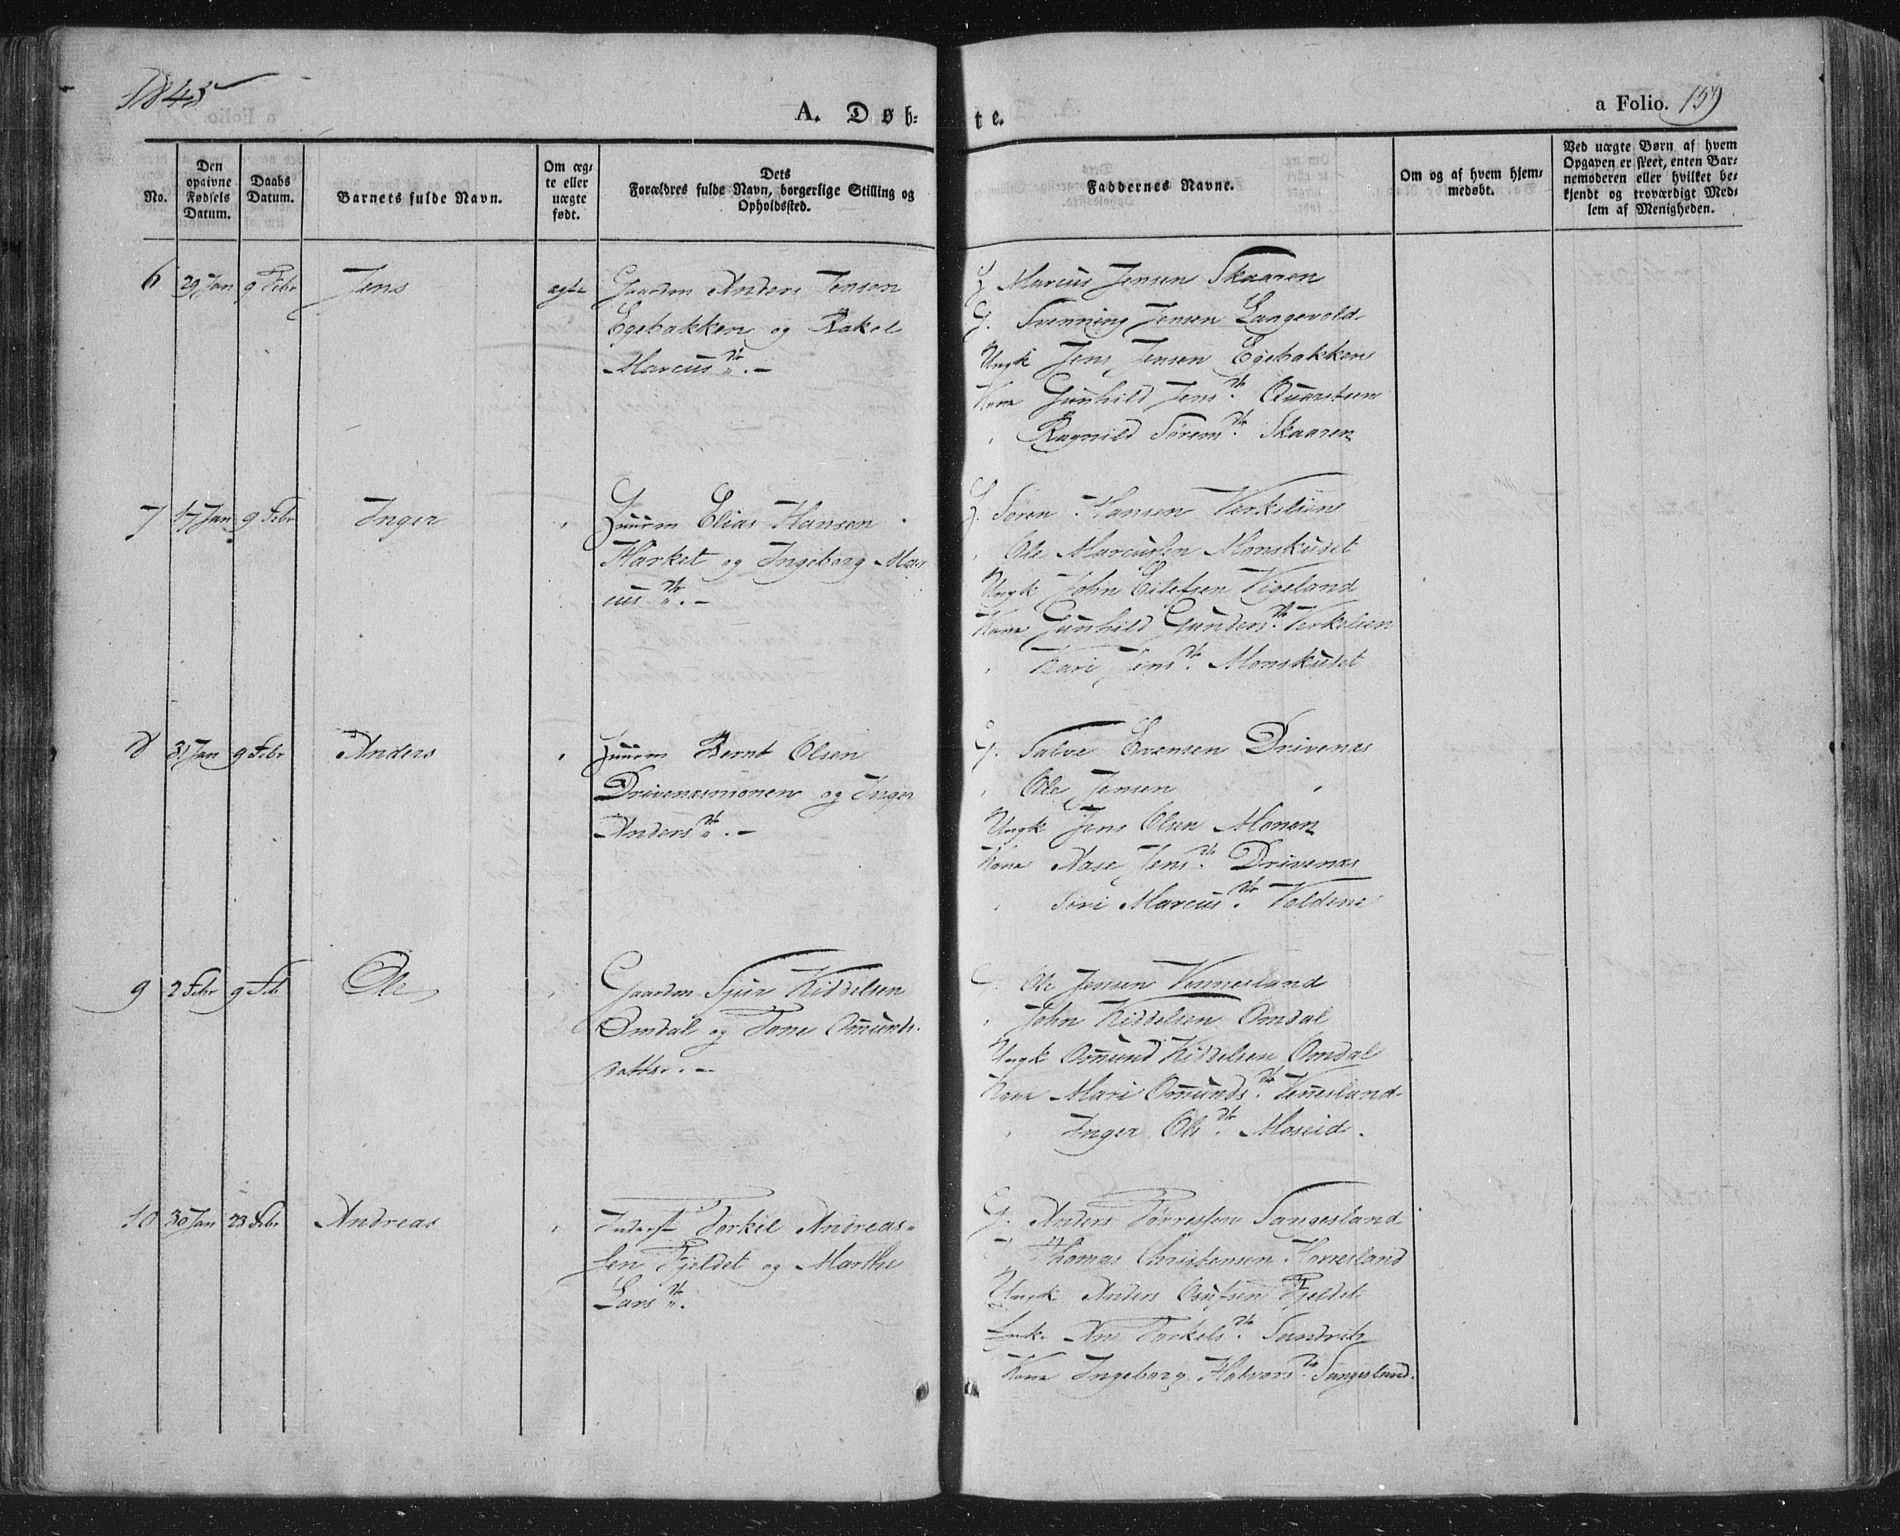 1845
A. Døb-
te.
a Folio. 159
No.
Den opgivne Fødsels Datum.
Daabs Datum.
Barnets fulde Navn.
Om æg-
te eller
uægte
født.
Dets
Forældres fulde Navn, borgerlige Stilling og
Opholdssted.
Faddernes Navne.
Om og af hvem hjem-
medøbt.
Ved uægte Børn af hvem
Opgaven er skeet, enten Bar-
nemoderen eller hvilket be-
kjendt og troværdigt Med-
lem af Menigheden.
6 29 Jan 9 Febr Jens ægte Gaardm Anders Jensen
Egebakken og Rakel
Marcus dtr. -
G. Marcus Jensen Skaaren
G. Svenning Jensen Langevold
Ungk Jens Jensen Egebakken
Kone Gunhild Jens dtr. Quarsteen
Ragnild Sørens dtr. Skaaren
7 17 Jan 9 Febr Inger " Huusm Elias Hansen
Harket og Ingeborg Mar
cus dtr. -
G. Søren Hansen Verkelien
" Ole Marcussen Monskudet
Ungk John Eilefsen Vigeland
Kone Gunhild Gunders dtr. Verkelien
" Kari Jens dtr. Monskudet
8 31 Jan 9 Febr Anders " Huusm Bernt Olsen
Drivenesmonen og Inger
Anders dtr. -
G. Salve Evensen Drivenes
" Ole Jensen "
Ungk Jens Olsen Monen
Kone Aase Jens dtr. Drivenes
" Siri Marcus dtr. Voldene
9 2 Febr 9 Feb Ole " Gaardm Sjur Kiddelsen
Omdal og Tone Omunds-
datter. -
G. Ole Jensen Vennesland
" John Kiddelsen Omdal
Ungk Omund Kiddelsen Omdal
Kone Mari Omunds dtr. Venesland
" Inger Ols dtr. Moseid.
10 30 Jan 23 Febr Andreas " Inderst Torkil Andreas-
sen Fjeldet og Marthe
Lars dtr.
G. Anders Tørressen Sangesland
" Thomas Christensen Horresland
Ungk Anders Osufsen Fjeldet
Enk. Ane Torkels dtr.
Kone Ingeborg Halvors dtr. Sangesland.